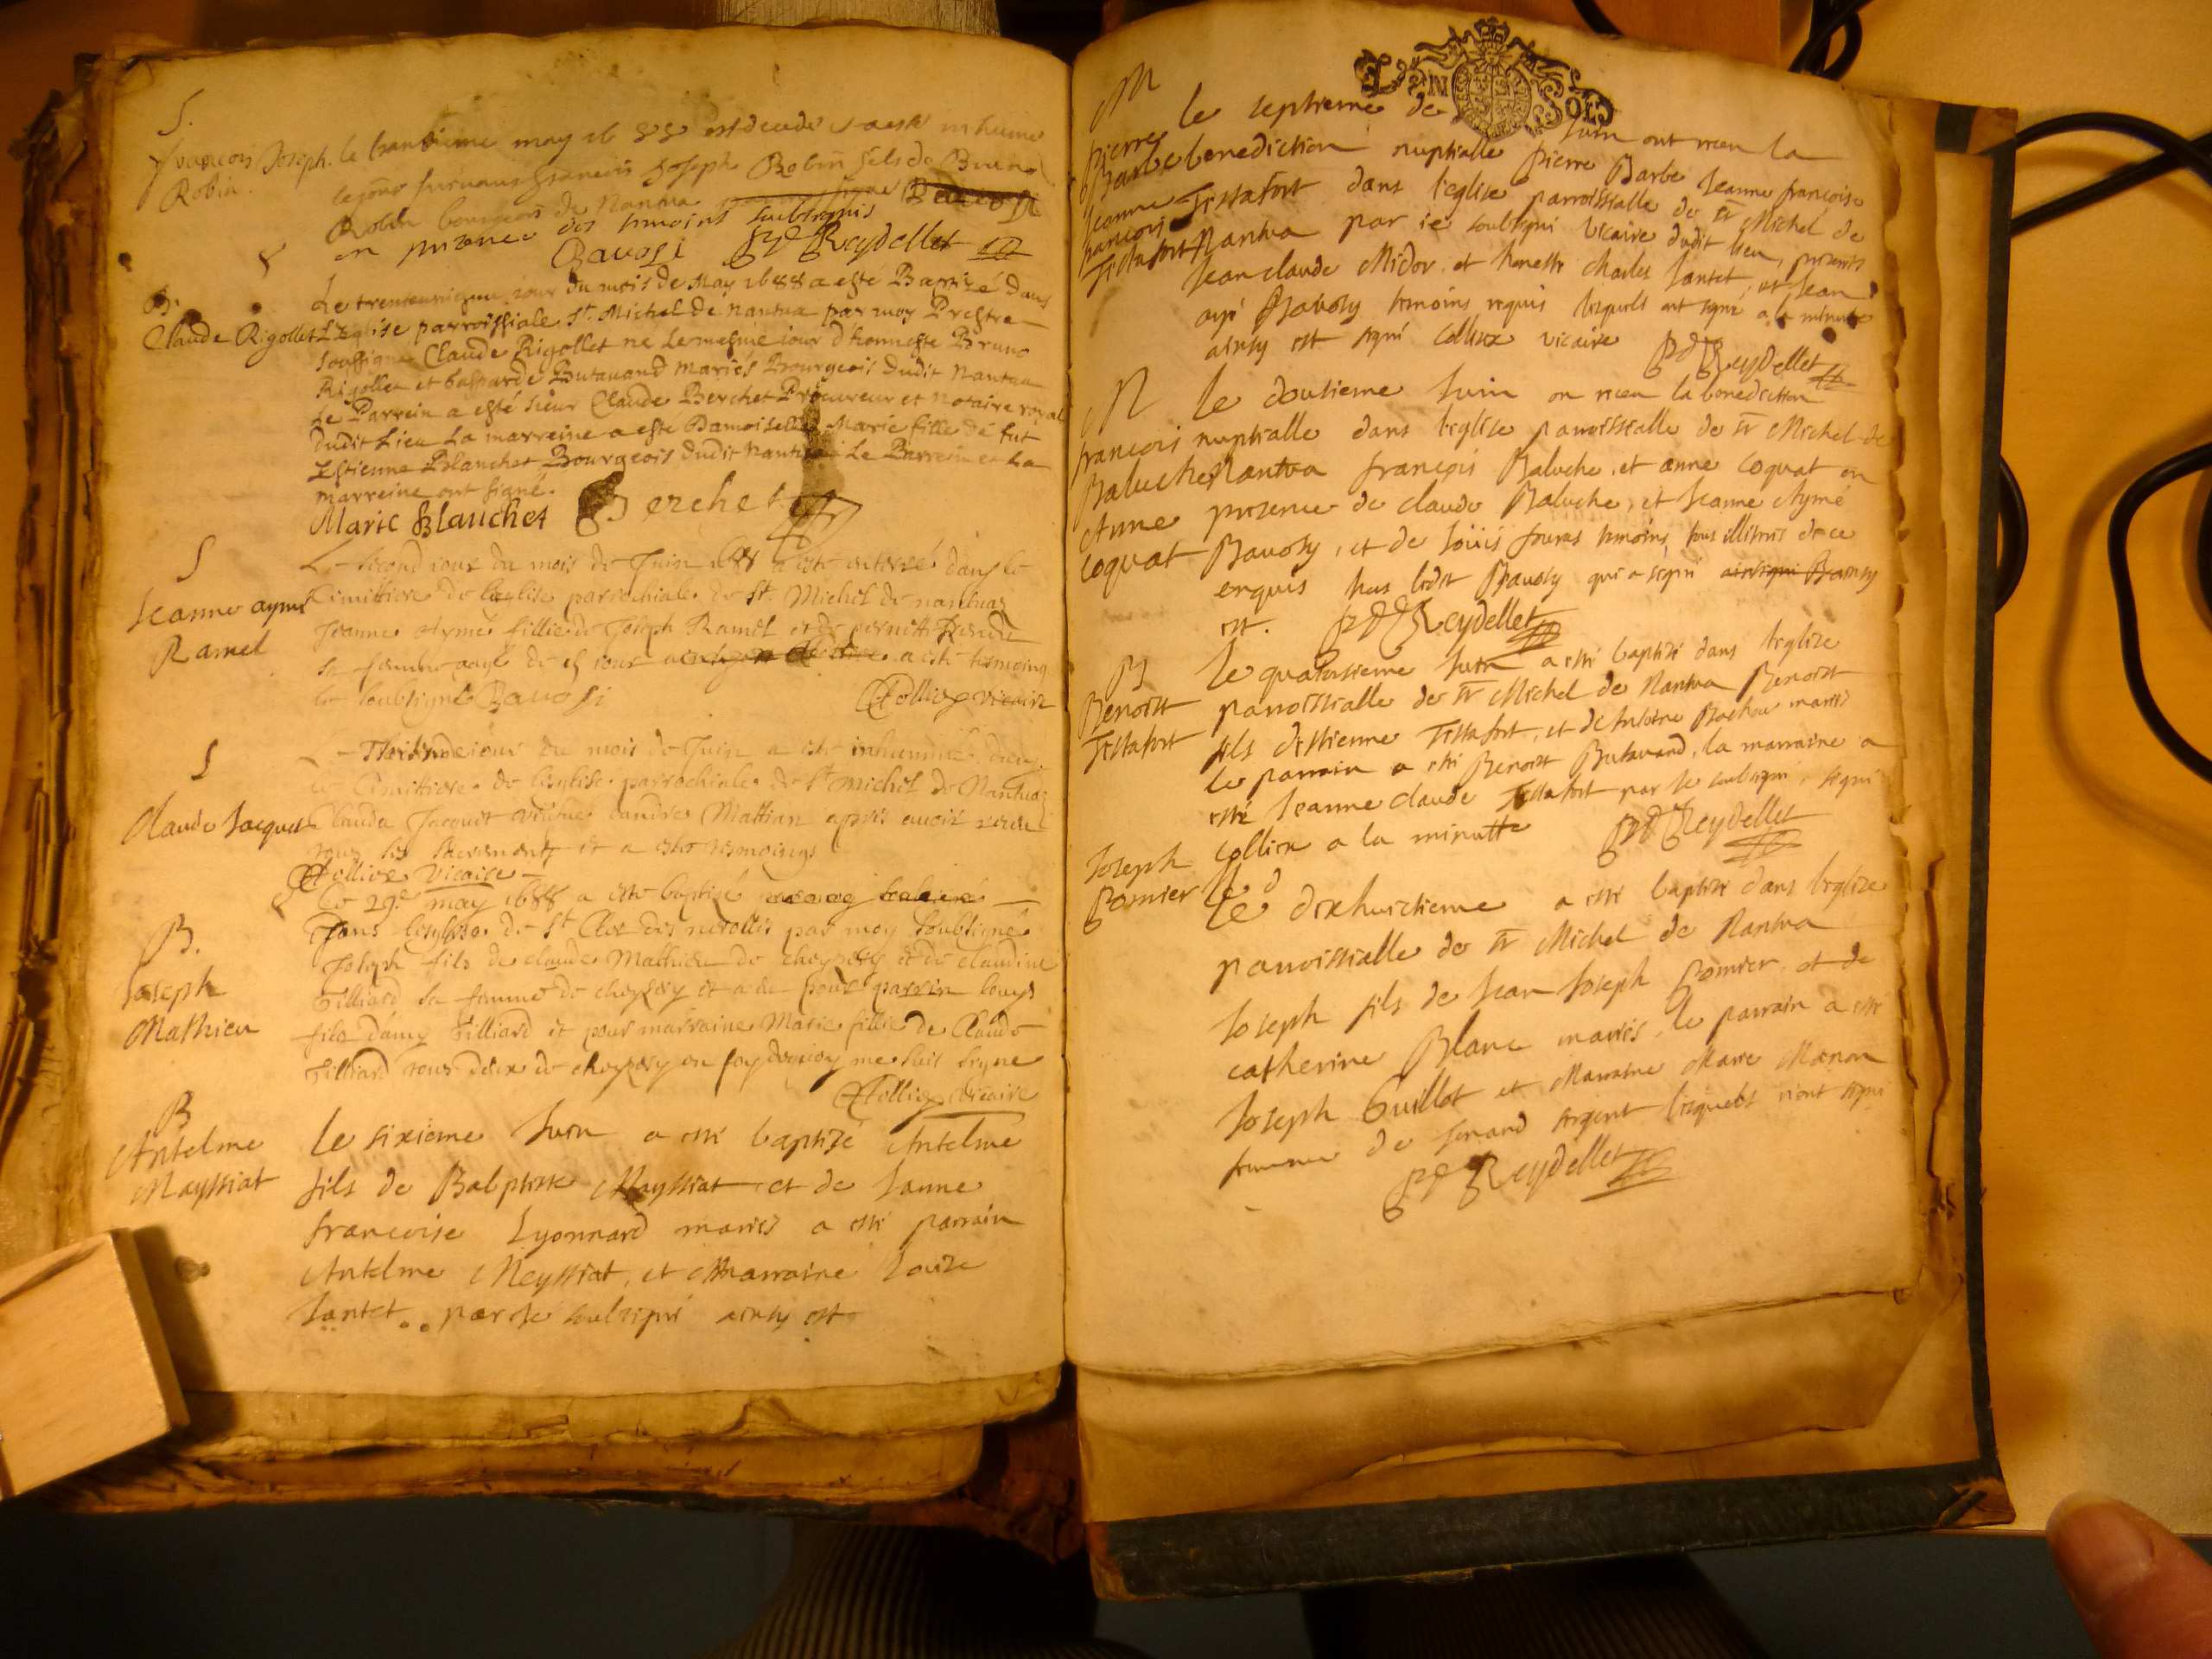 S.
François Joseph
Robin.
le trantieme may 1688 est decedé et a esté inhumé
le jour suivant françois Joseph Robin fils de Bruno
Robin bourgeois de Nantua
en presence des tmoins soubsignés
Bavosi Reydellet
B.
Claude Rigollet
Le trenteunieme jour du mois de May 1688 a esté Baptizé dans
L'Eglise parroissiale St. Michel de nantua par moy Prestre
soussigné Claude Rigollet né le mesme jour d'honneste Bruno
Rigollet et Gasparde Butavand mariés Bourgeois dudit Nantua
Le Parrein a esté sieur Claude Berchet Procureur et Notaire royal
dudit Lieu La marreine a esté Damoiselle Marie fille de fut
Estienne Blanchet Bourgeois dudit Nantua Le Parrein et La
marreine ont signé.
Marie Blanchet Berchet
S
Jeanne aymé
Ramel
Le second jour du mois de Juin 1688 a esté enterré dans le
Cimittiere de l'eglise parrochiale de St. Michel de nantuaz
Jeanne Aymé fillie de Joseph Ramel et de pernette
sa femme aagé de jour a esté tesmoing
le soubsigné Bavosi
Collix vicaire
S
Claude Jacquet
jour du mois de Juin a esté inhumée dans
le Cimittiere de l'esglise parrochiale de St michel de Nantuaz
Claude Jacquet vefve dandré Mattian apres avoir receu
tous les sacrements et a esté tesmoings
Collix Vicaire
B.
Joseph
Mathieu
Le 29e may 1688 a esté baptisé
dans lesglise de St Clair des nerolles par moy soubsigné
Joseph fils de claude Mathieu de cheysery et de claudine
Tilliard sa femme de cheysery et a eu pour parrin Louys
fils damy Tilliard et pour marraine Marie fillie de Claude
Tilliard tous deux de cheysery en foy dequoy me suis signe
Collix vicaire
B
Antelme
Mayssiat
le sixieme Juin a esté baptizé Antelme
fils de Balptiste Mayssiat et de Janne
francoise Lyonnard mariés a esté parrain
Antelme Meyssiat, et Marraine Louize
Jantet par je soubsigné ainsy est
M
Pierre
Barbe
Jeanne
françoise
Tistafort
le septieme de Juin ont receu la
benediction nuptialle Pierre Barbe Jeanne françoise
Tistafort dans l'eglise parroissialle de St Michel de
Nantua par je soubsigné vicaire dudit lieu, presents
Jean claude Midor et honeste Charles Jantet, et Jean
ayé Bavosy temoins requis lesquels ont signé a la minute
ainsy est signé Collix vicaire Reydellet
M
françois
Baluche
Anne
Coquat
le douzieme Juin on receu la benediction
nuptialle dans l'eglise parroissialle de St Michel de
Nantua françois Baluche, et anne Coquat en
presence de claude Baluche, et Jeanne Aymé
Bavosy, et de Loüis fouras temoins, tous illitrés de ce
enquis hors ledit Bavosy qui a signé ainsy
est. Reydellet
B
Benoist
Tistafort
le quatorsieme Juin a esté baptizé dans l'eglize
parroissialle de St Michel de Nantua Benoist
fils destienne Tistafort, et de Antoine Bochou mariés
le parrain a esté Benoist Butavand, la marraine a
esté Jeanne claude Tistafort par je soubsigné, signé
Collix a la minutte Reydellet
Joseph
Gomier
le dixhuictieme a esté baptizé dans l'eglize
parroissialle de St Michel de Nantua
Joseph fils de Jean Joseph Gomier, et de
catherine Blanc mariés, le parrain a esté
Joseph Guillot et Marraine Marie Manon
femme de fenand Argent lesquels n'ont signé
Reydellet